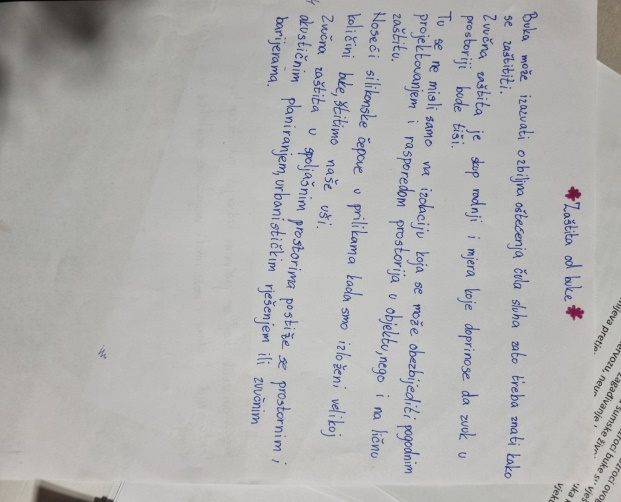 Zaštita od buke
Buka može izazvati ozbiljna oštećenja čula sluha zato treba znati kako
se zaštititi.
Zvučna zaštita je skup radnji i mjera koje doprinose da zvuk u
prostoriji bude tiši.
Tu se ne misli samo na izolaciju koja se može obezbijediti pogodnim
projektovanjem i rasporedom prostorija u objektu, nego i na ličnu
zaštitu.
Noseći silikonske čepove u prilikama kada smo izloženi velikoj
količini buke, štitimo naše uši.
Zvučna zaštita u spoljašnim prostorima postiže se prostornim i
akustičnim planiranjem, urbanističkim rješenjem ili zvučnim
barijerama.